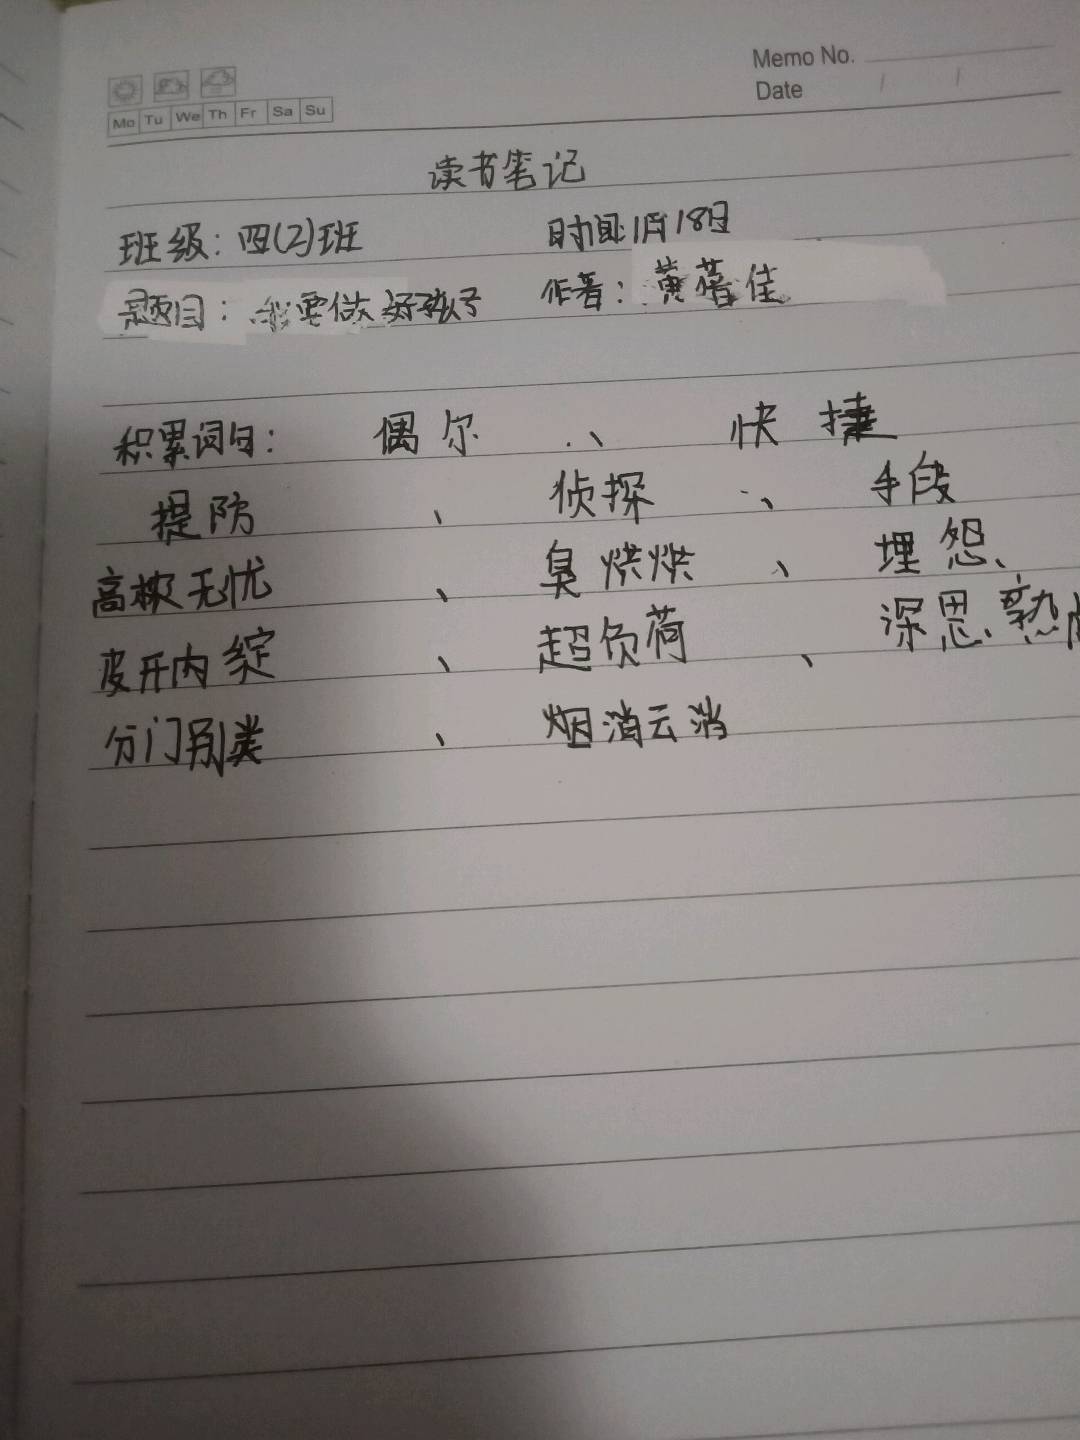 Memo No.
Mo Tu We Th Fr Sa Su
Date / /
读书笔记
班级：四(2)班 时间:1月18日
题目：我要做好孩子 作者：黄蓓佳
积累词句： 偶尔 、 快捷
提防 、 侦探 、 手段
高枕无忧 、 臭烘烘 、 埋怨、
皮开肉绽 、 超负荷 、 深思熟
分门别类 、 烟消云消